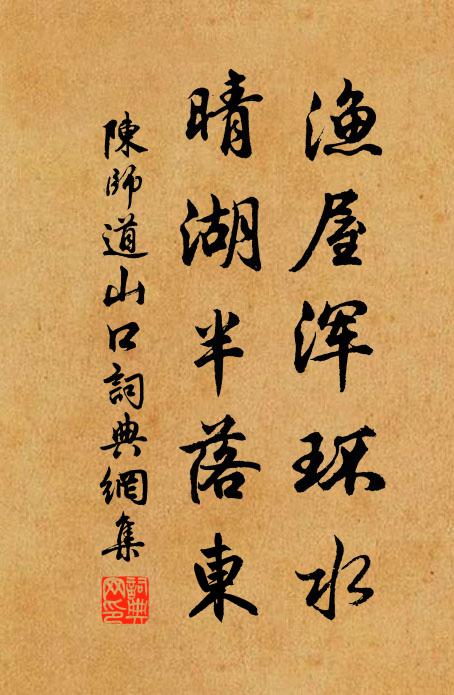 渔屋浑环水
晴湖半落東
陳師道山口詞典網集
詞典网印